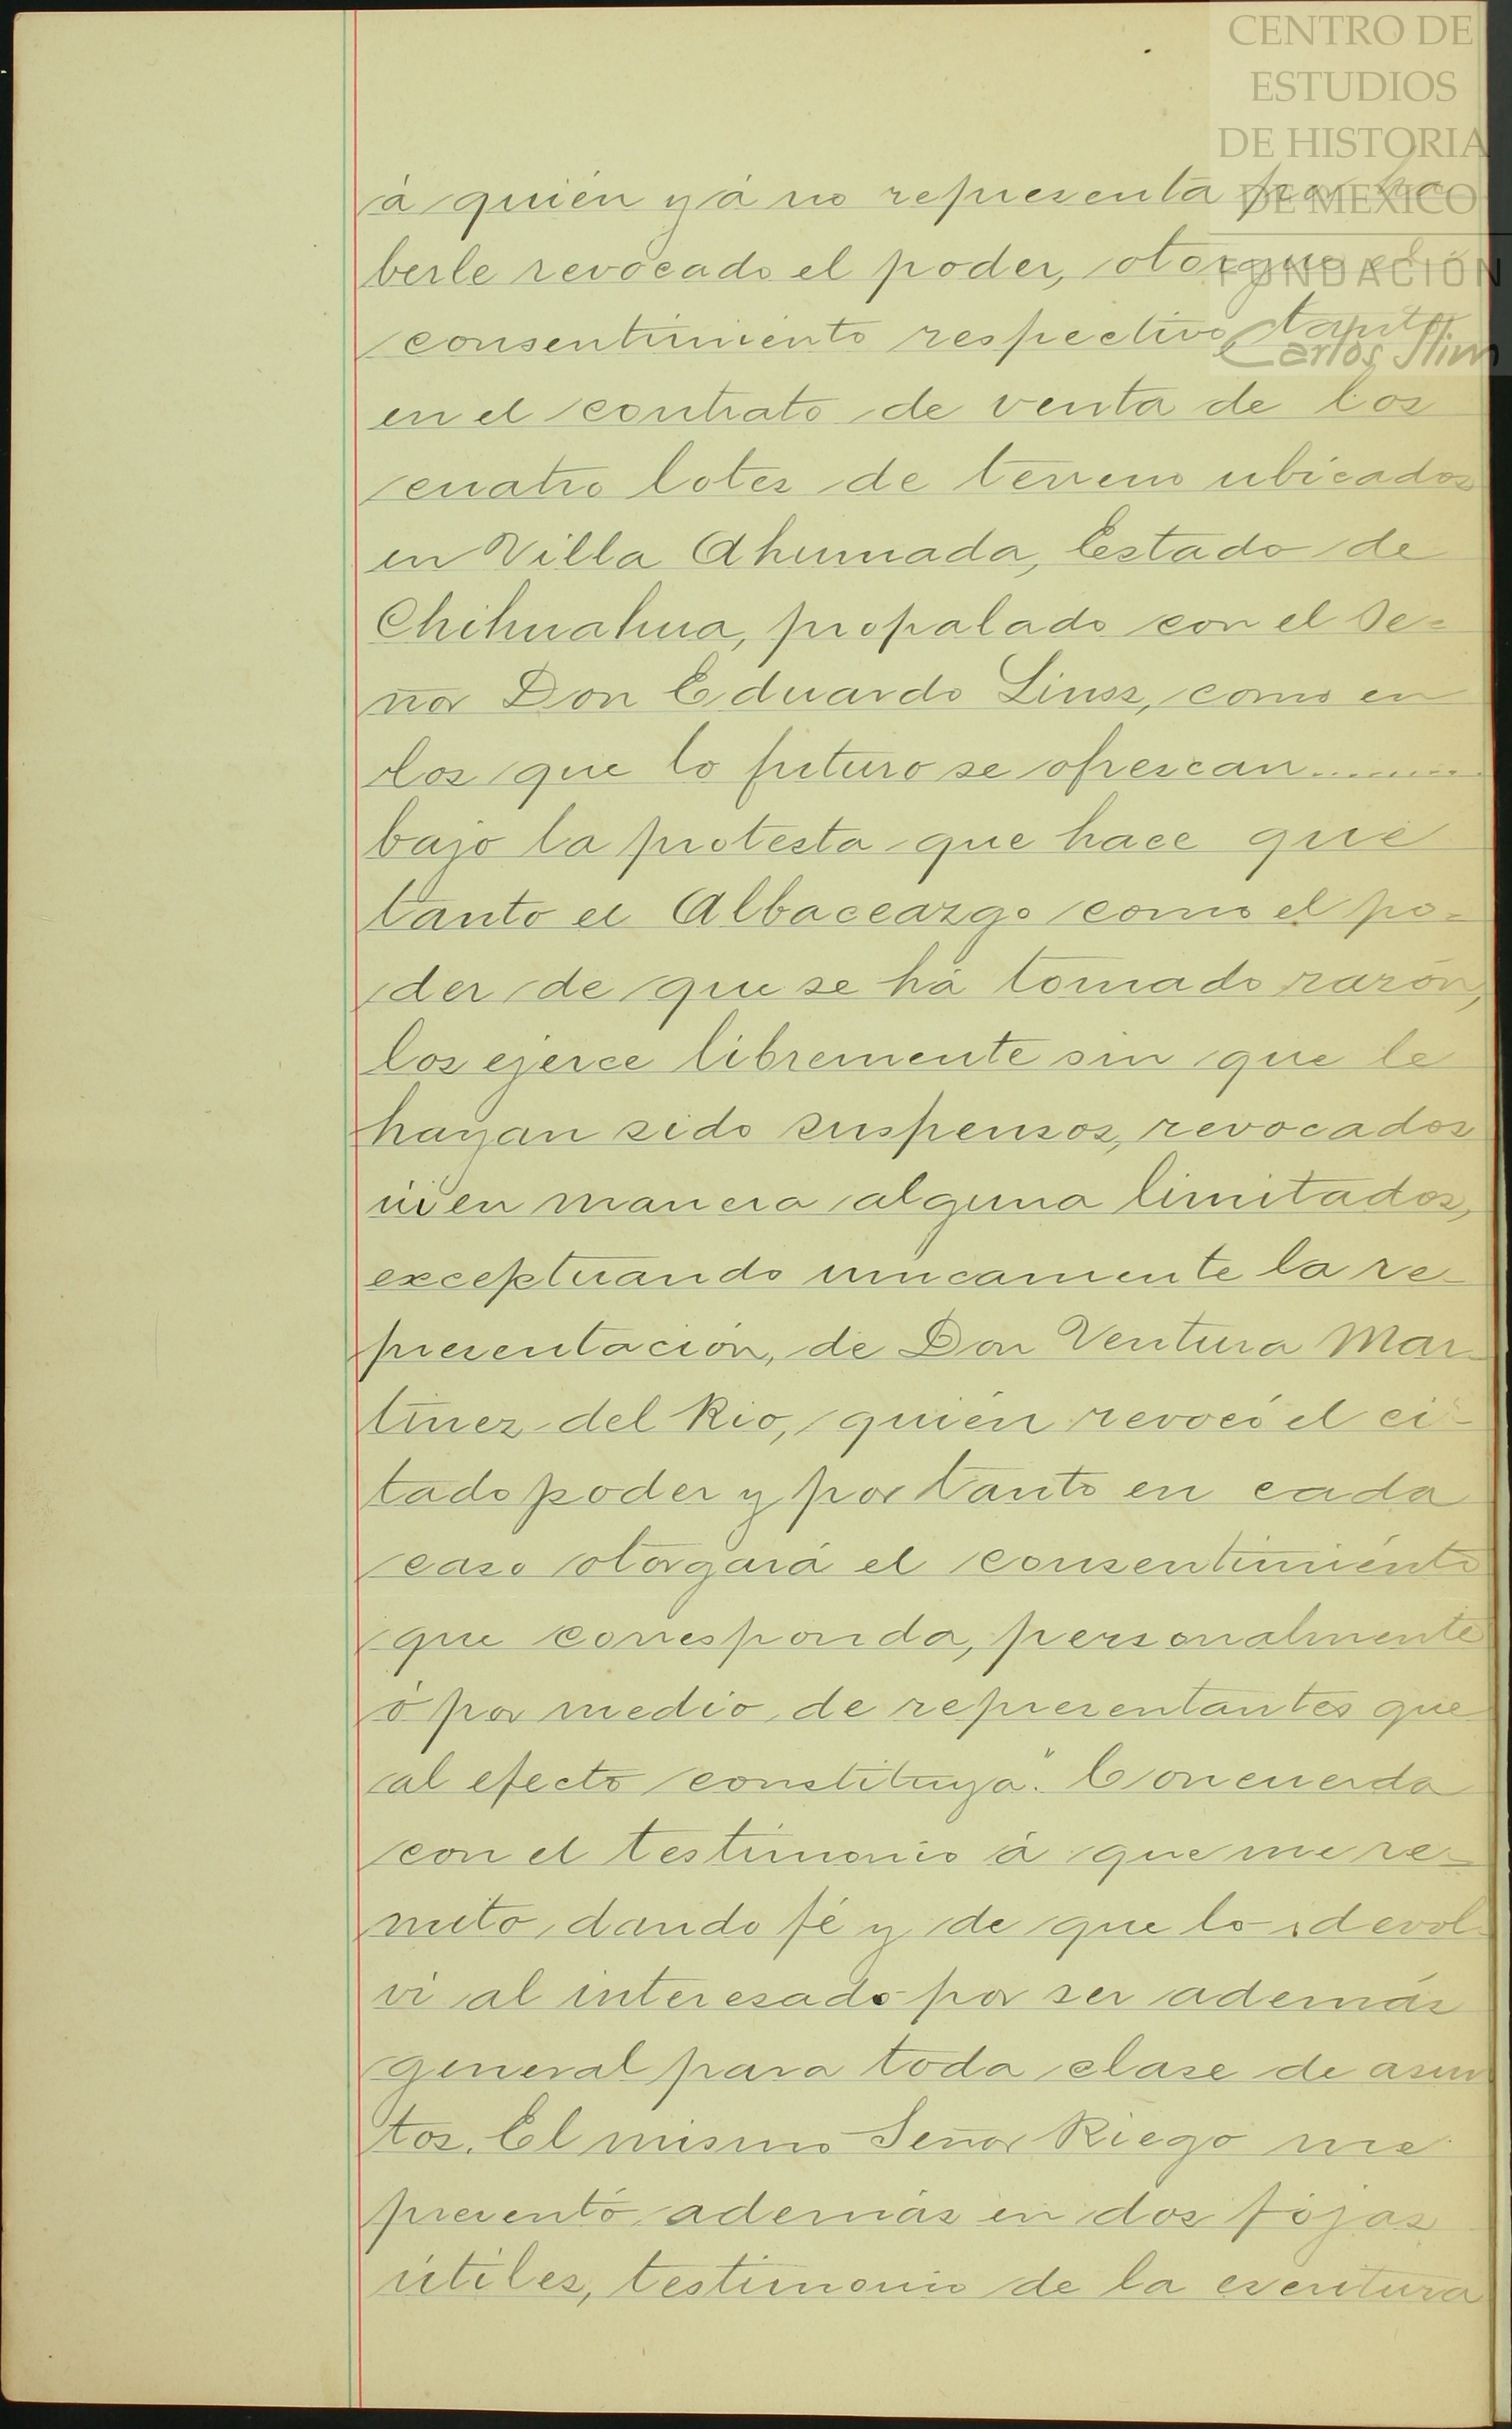 CENTRO DE
ESTUDIOS
DE HISTORIA
DE MEXICO
FUNDACIÓN
Carlos Slim
á quién yá no representa por ha
berle revocado el poder, otorgue el
consentimiento respectivo, tanto
en el contrato de venta de los
cuatro lotes de terreno ubicados
en Villa Ahumada, Estado de
Chihuahua, propalado con el Se=
ñor Don Eduardo Linss, como en
los que lo futuro se ofrescan........
bajo la protesta que hace que
tanto el Albaceazgo como el po-
der de que se há tomado razón,
los ejerce libremente sin que le
hayan sido suspensos, revocados
ni en manera alguna limitados,
exceptuando unicamente la re-
presentación, de Don Ventura Mar-
tinez del Rio, quién revocó el ci-
tado poder y por tanto en cada
caso otorgará el consentimiento
que corresponda, personalmente
ó por medio de representantes que
al efecto constituya." Concuerda
con el testimonio á que me re-
mito, dando fé y de que lo devol
vi al interesado por ser además
general para toda clase de asun
tos. El mismo Señor Riego me
presentó además en dos fojas
útiles, testimonio de la escritura